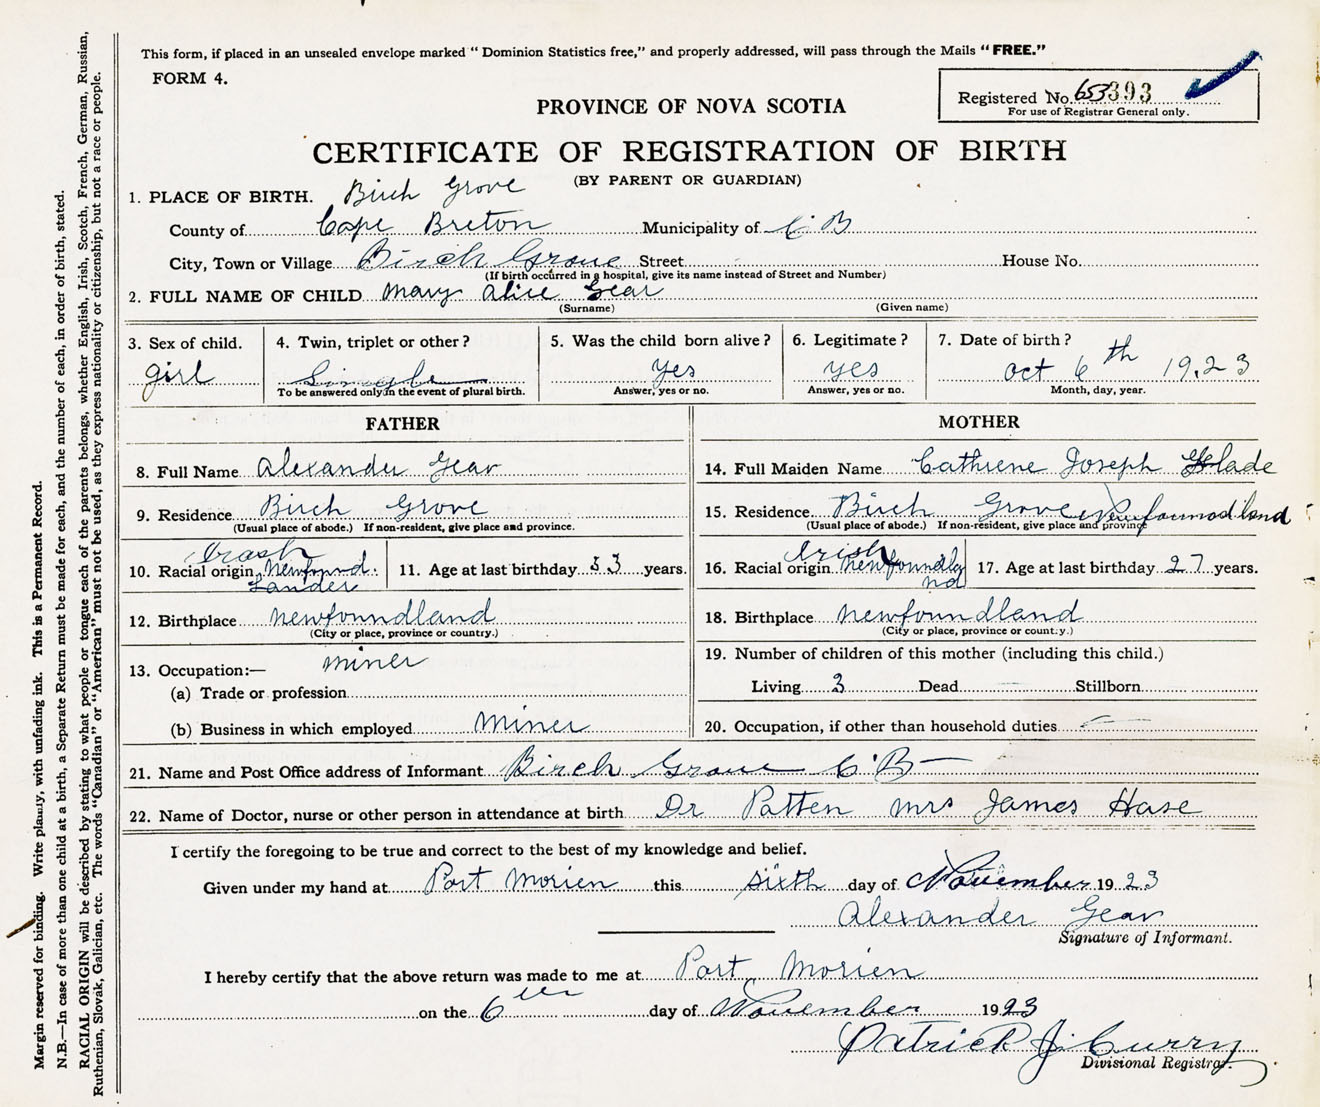 This form, if placed in an unsealed envelope marked "Dominion Statistics free," and properly addressed, will pass through the Mails "FREE."
FORM 4.
Registered No. 653393
For use of Registrar General only.
PROVINCE OF NOVA SCOTIA
CERTIFICATE OF REGISTRATION OF BIRTH
(BY PARENT OR GUARDIAN)
1. PLACE OF BIRTH. Birch Grove
County of Cape Breton Municipality of C B
City, Town or Village Birch Grove Street House No.
(If birth occurred in a hospital, give its name instead of Street and Number)
2. FULL NAME OF CHILD Mary Alice Gear
(Surname) (Given name)
3. Sex of child. 4. Twin, triplet or other? 5. Was the child born alive? 6. Legitimate? 7. Date of birth?
girl Single Yes yes Oct 6th 1923
To be answered only in the event of plural birth. Answer, yes or no. Answer, yes or no. Month, day, year.
FATHER
8. Full Name Alexander Gear
9. Residence Birch Grove
(Usual place of abode.) If non-resident, give place and province.
10. Racial origin Newfound. Lander 11. Age at last birthday 53 years.
12. Birthplace Newfoundland
(City or place, province or country.)
13. Occupation:— miner
(a) Trade or profession
(b) Business in which employed Miner
MOTHER
14. Full Maiden Name Cathrene Joseph Slade
15. Residence Birch Grove Newfoundland
(Usual place of abode.) If non-resident, give place and province
16. Racial origin Irish Newfoundland 17. Age at last birthday 27 years.
18. Birthplace Newfoundland
(City or place, province or country.)
19. Number of children of this mother (including this child.)
Living 3 Dead Stillborn
20. Occupation, if other than household duties
21. Name and Post Office address of Informant Birch Grove C B
22. Name of Doctor, nurse or other person in attendance at birth Dr Patten Mrs James Hase
I certify the foregoing to be true and correct to the best of my knowledge and belief.
Given under my hand at Port Morien this sixth day of November 1923
Alexander Gear
Signature of Informant.
I hereby certify that the above return was made to me at Port Morien
on the 6 day of November 1923
Patrick J. Curry
Divisional Registrar.
Margin reserved for binding. Write plainly, with unfading ink. This is a Permanent Record.
N.B.—In case of more than one child at a birth, a Separate Return must be made for each, and the number of each, in order of birth, stated.
RACIAL ORIGIN will be described by stating to what people or tongue each of the parents belongs, whether English, Irish, Scotch, French, German, Russian,
Ruthenian, Slovak, Galician, etc. The words "Canadian" or "American" must not be used, as they express nationality or citizenship, but not a race or people.